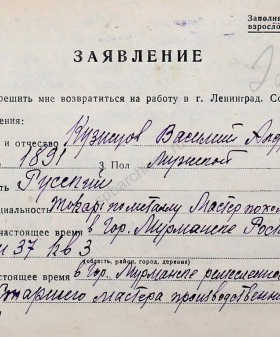 Заполня
взросло
ЗАЯВЛЕНИЕ
решить мне возвратиться на работу в г. Ленинград. Со
ения:
и отчество Кузнецов Василий Анд
1891 3. Пол Мужской
ть Русский
циальность Токарь по металлу Мастер
настоящее время в Гор. Мурманске Рос
37 кв 3
(область, район, город, деревня)
настоящее время в Гор. Мурманске
Старшего мастера производственн